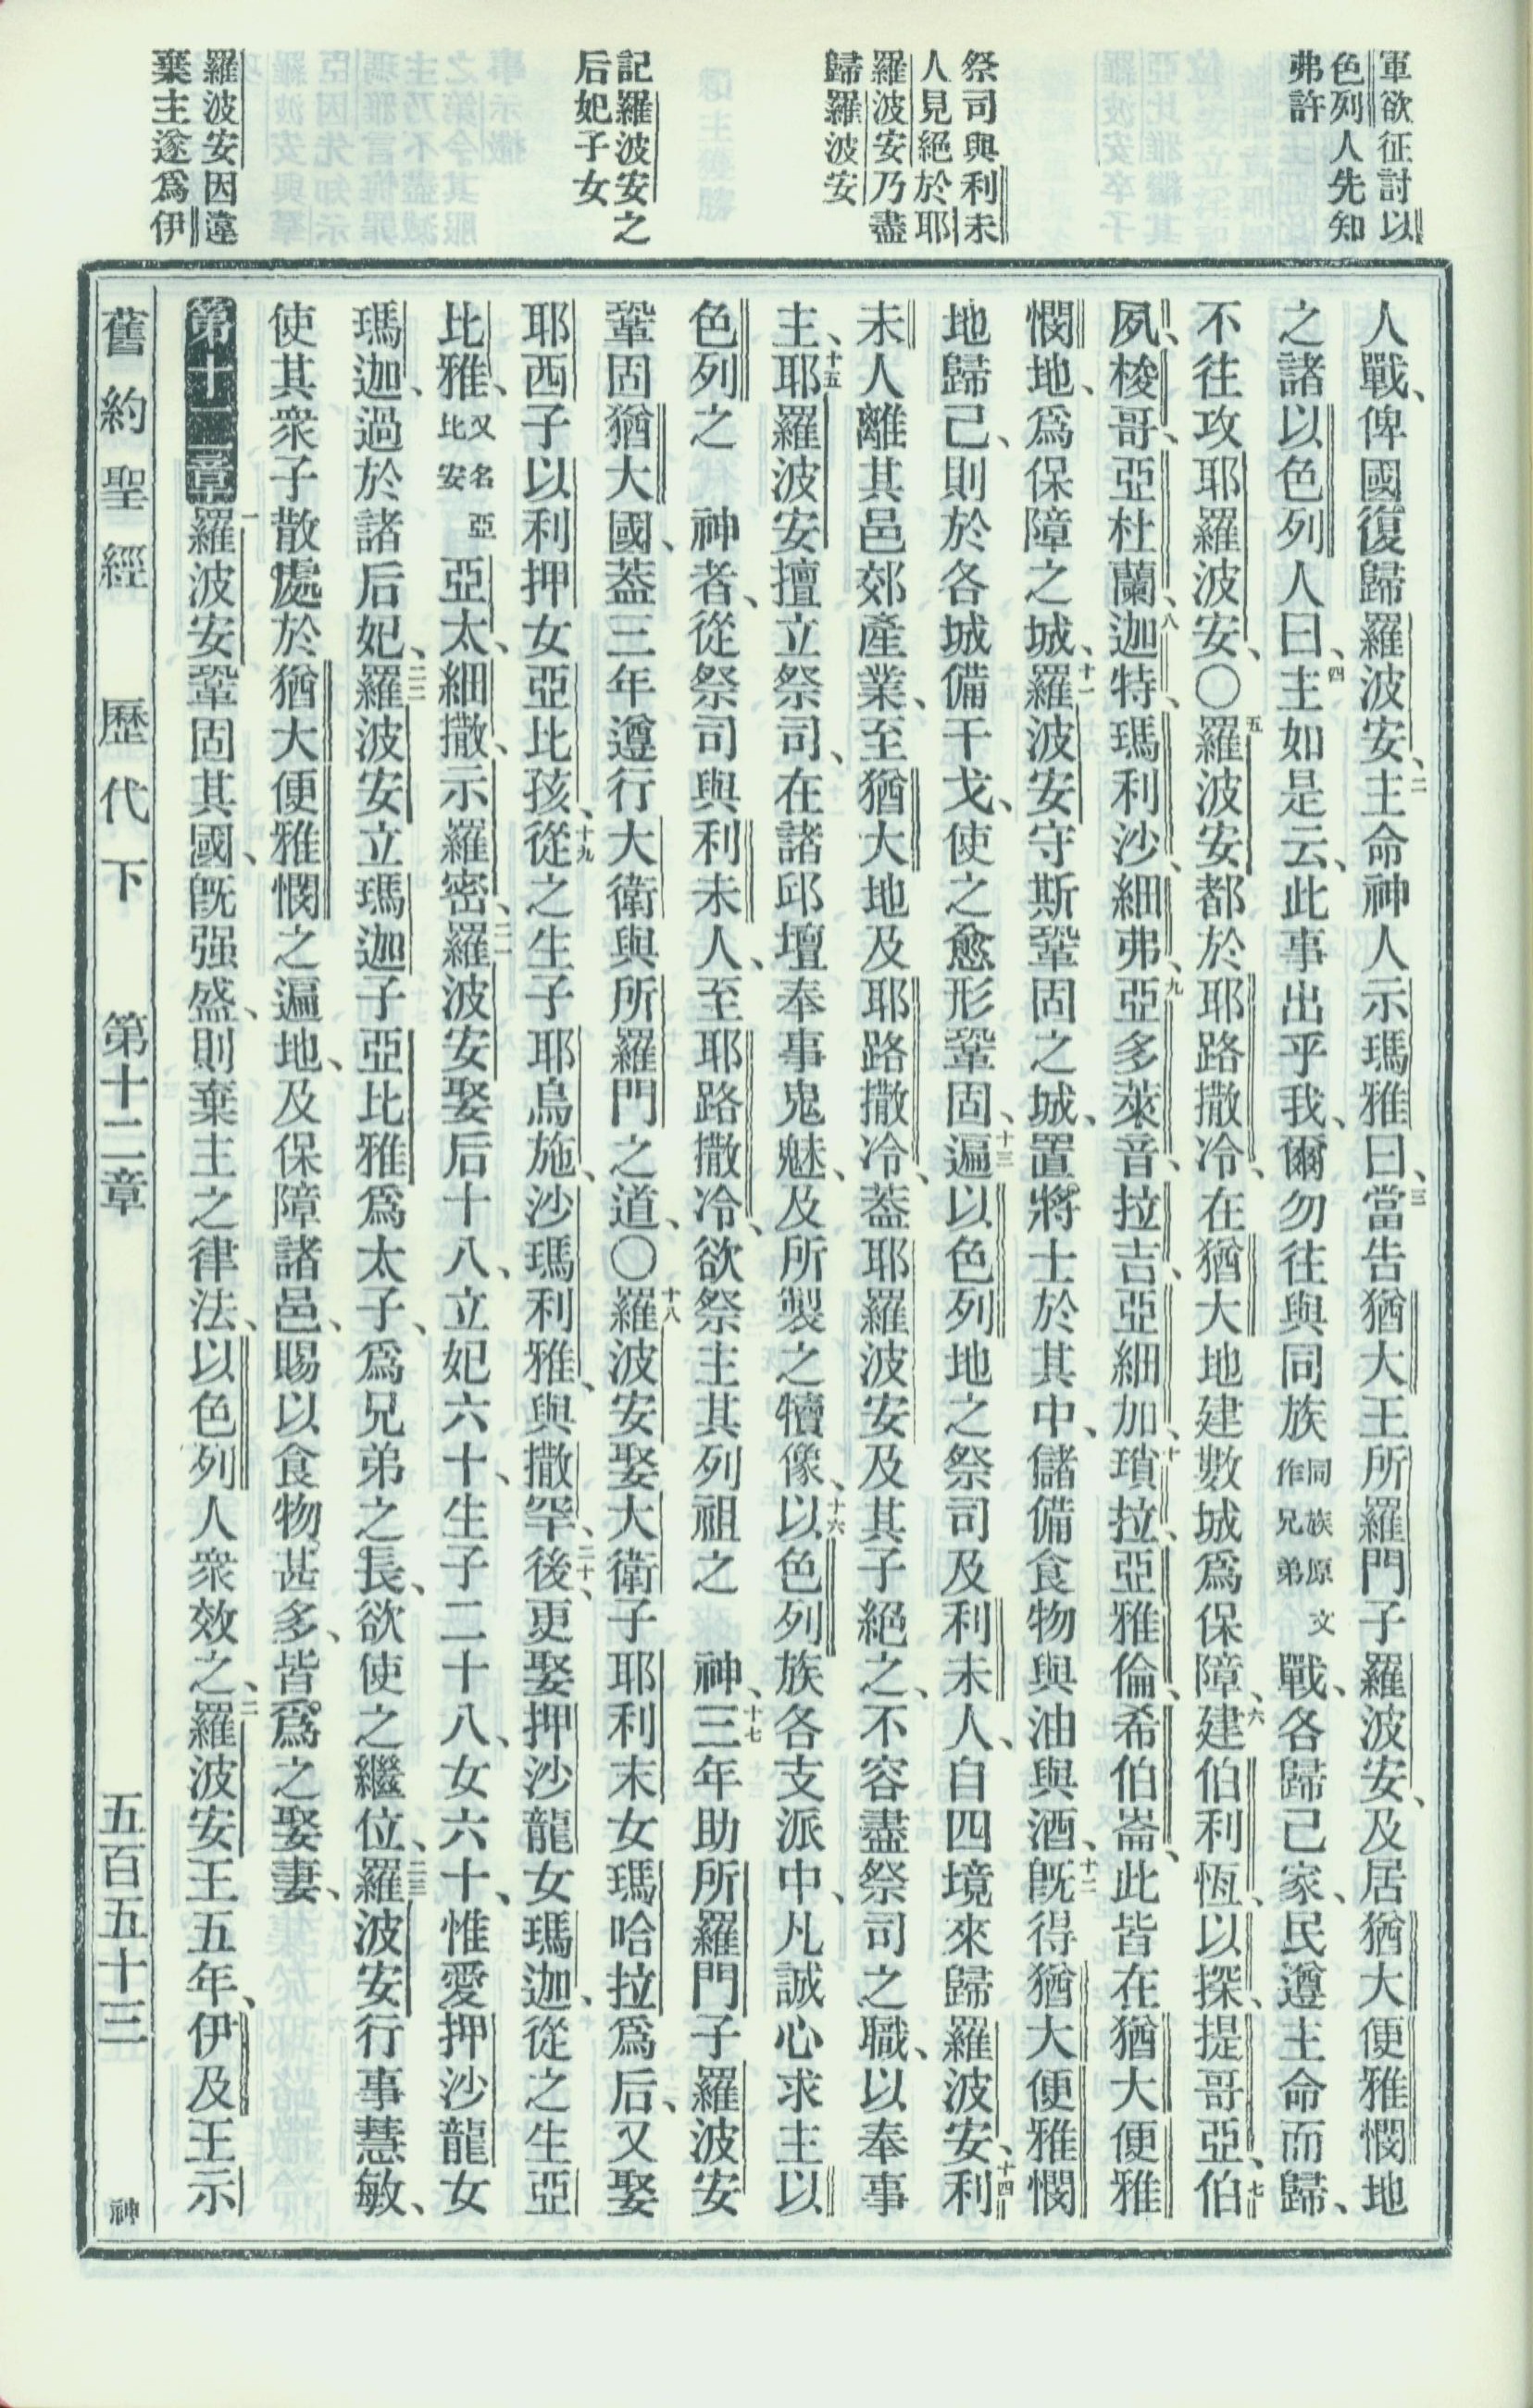 軍欲征討以
色列人先知
弗許
祭司與利未
人見絕於耶
羅波安乃盡
歸羅波安
記羅波安之
后妃子女
羅波安因違
棄主遂爲伊
人戰、俾國復歸羅波安、二主命神人示瑪雅曰、三當告猶大王所羅門子羅波安、及居猶大便雅憫地
之諸以色列人曰、四主如是云、此事出乎我、爾勿往與同族同族原文作兄弟戰、各歸己家、民遵主命而歸、
不往攻耶羅波安、〇五羅波安都於耶路撒冷、在猶大地建數城爲保障、六建伯利恆、以探、提哥亞、七伯
夙、梭哥、亞杜蘭、八迦特、瑪利沙、細弗、九亞多萊音、拉吉、亞細加、十瑣拉、亞雅倫、希伯崙、此皆在猶大便雅
憫地、爲保障之城、十一羅波安守斯鞏固之城、置將士於其中、儲備食物與油與酒、十二旣得猶大便雅憫
地歸己、則於各城備干戈、使之愈形鞏固、十三遍以色列地之祭司及利未人、自四境來歸羅波安、十四利
未人離其邑郊產業、至猶大地及耶路撒冷、蓋耶羅波安及其子絕之、不容盡祭司之職、以奉事
主、十五耶羅波安擅立祭司、在諸邱壇奉事鬼魅、及所製之犢像、十六以色列族各支派中、凡誠心求主以
色列之 神者、從祭司與利未人、至耶路撒冷、欲祭主其列祖之 神、十七三年助所羅門子羅波安
鞏固猶大國、蓋三年遵行大衛與所羅門之道、〇十八羅波安娶大衛子耶利末女瑪哈拉爲后、又娶
耶西子以利押女亞比孩、十九從之生子耶烏施、沙瑪利雅、與撒罕、二十後、更娶押沙龍女瑪迦、從之生亞
比雅、又名亞比安亞太、細撒、示羅密、二一羅波安娶后十八、立妃六十、生子二十八、女六十、惟愛押沙龍女
瑪迦、過於諸后妃、二二羅波安立瑪迦子亞比雅爲太子、爲兄弟之長、欲使之繼位、二三羅波安行事慧敏、
使其衆子散處於猶大便雅憫之遍地、及保障諸邑、賜以食物甚多、皆爲之娶妻、
第十二章一羅波安鞏固其國、旣强盛、則棄主之律法、以色列人衆效之、二羅波安王五年、伊及王示
舊約聖經 歷代下 第十二章 五百五十三 神